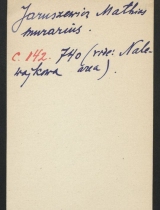 Jaruszewicz Mathias
murarius.
C. 842. 740 (vide: Nale-
wajkowa area).